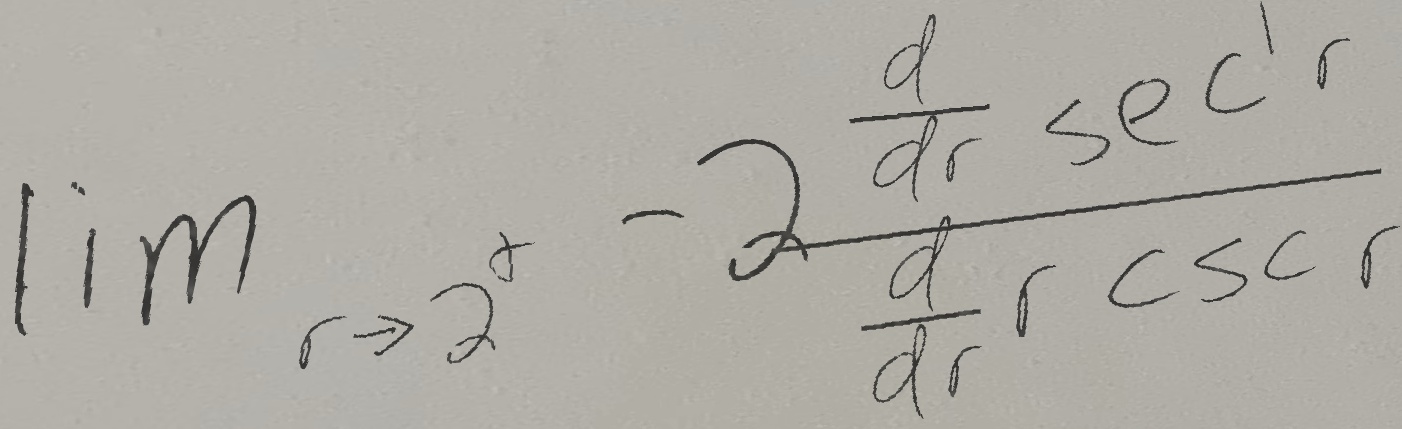 \lim_{r \to 2^+} -2 \frac{\frac{d}{dr} \sec^1 r}{\frac{d}{dr} r \csc r}